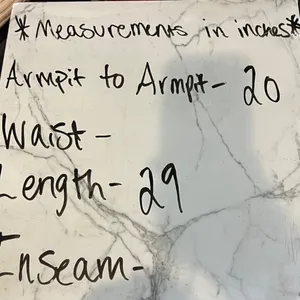 *Measurements in inches*
Armpit to Armpit- 20
Waist-
Length- 29
Inseam-